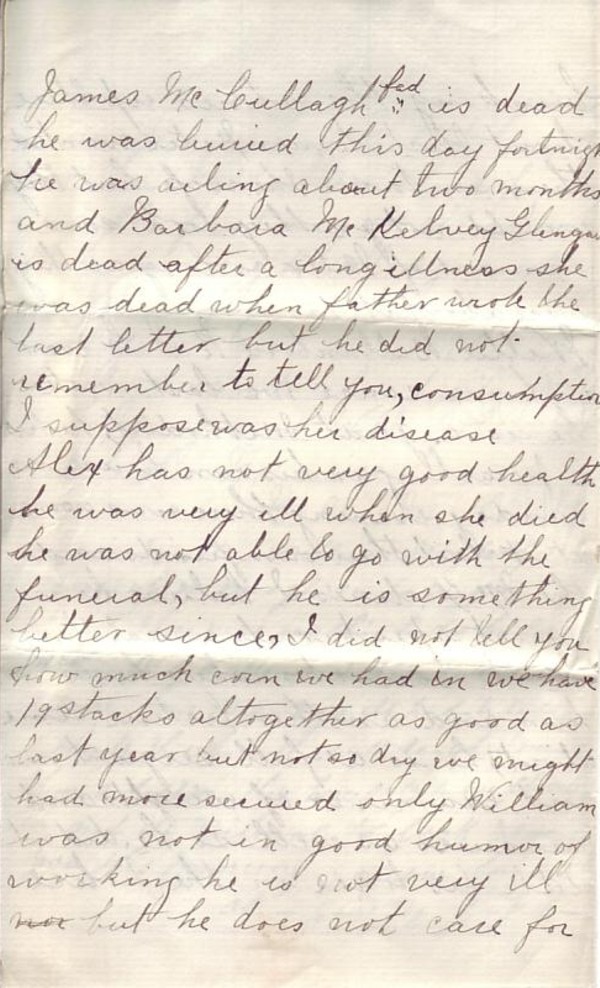 James McCullagh fad is dead
he was buried this day fortnigh
he was ailing about two months
and Barbara McKelvey Glenga
is dead after a long illness she
was dead when father wrote the
last letter but he did not
remember to tell you, consumption
I suppose was her disease
Alex has not very good health
he was very ill when she died
he was not able to go with the
funeral, but he is something
better since, I did not tell you
how much corn we had in we have
19 stacks altogether as good as
last year but not so dry we might
had more secured only William
was not in good humor of
working he is not very ill
nor but he does not care for